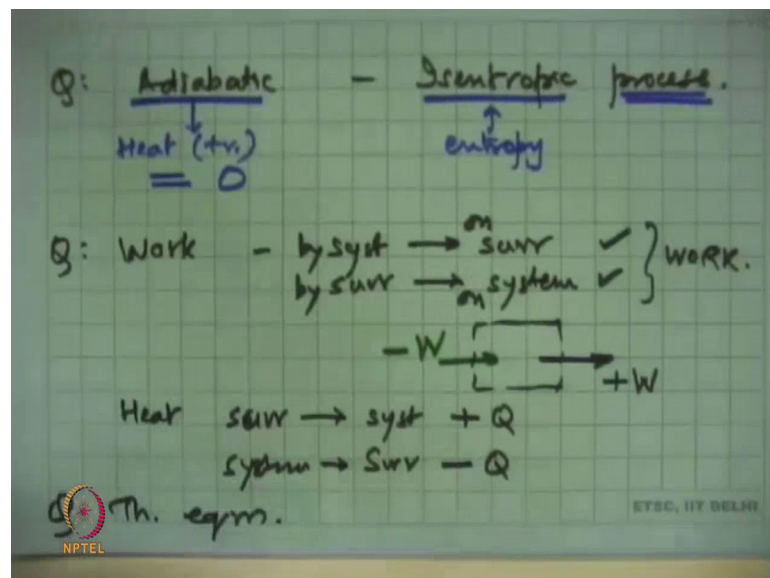 Q: Adiabatic - Isentropic process.
Heat (tr.) entropy
0
Q: Work - by syst → on surr ✓
by surr → on system ✓ } WORK.
-W
+W
Heat surr → syst + Q
system → Surr - Q
Q Th. eqm.
ETSC, IIT DELHI
NPTEL